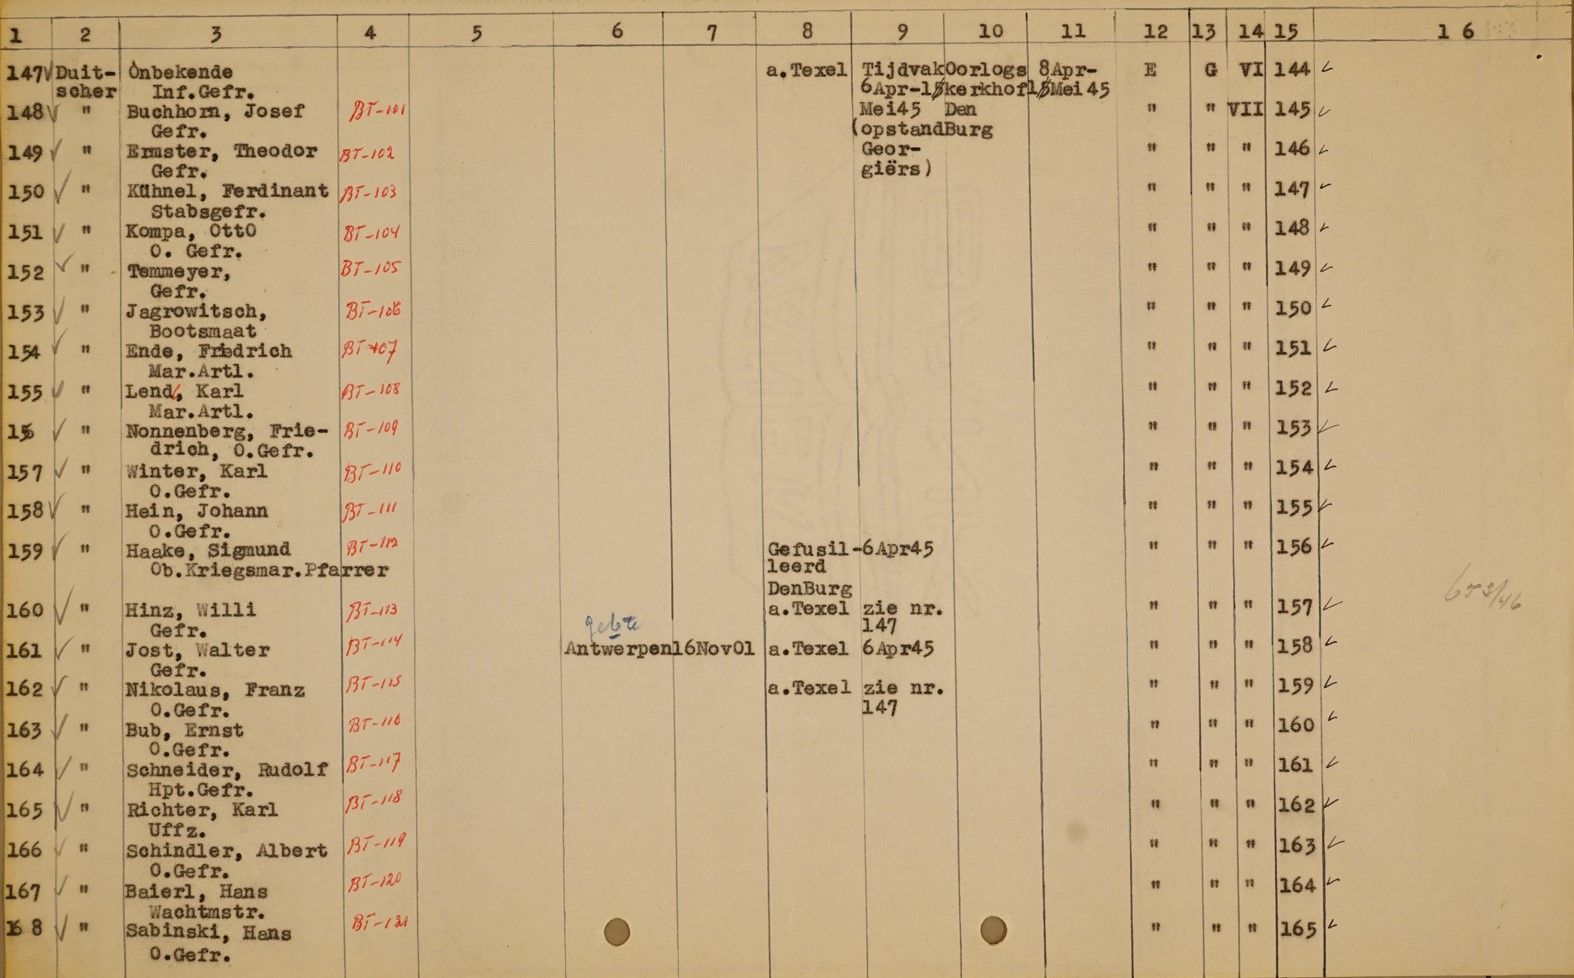 1 2 3 4 5 6 7 8 9 10 11 12 13 14 15 16
147 Duit- Onbekende a.Texel Tijdvak Oorlogs 8Apr- E G VI 144
scher Inf.Gefr. 6Apr-15 kerkhof 15Mei45
148 " Buchhorn, Josef BT-101 Mei45 Den " " VII 145
Gefr. (opstand Burg
149 " Ermster, Theodor BT-102 Geor- " " " 146
Gefr. giërs)
150 " Kühnel, Ferdinant BT-103 " " " 147
Stabsgefr.
151 " Kompa, OttO BT-104 " " " 148
O. Gefr.
152 " Temmeyer, BT-105 " " " 149
Gefr.
153 " Jagrowitsch, BT-106 " " " 150
Bootsmaat
154 " Ende, Friedrich BT-107 " " " 151
Mar.Artl.
155 " Lend, Karl BT-108 " " " 152
Mar.Artl.
156 " Nonnenberg, Frie- BT-109 " " " 153
drich, O.Gefr.
157 " Winter, Karl BT-110 " " " 154
O.Gefr.
158 " Hein, Johann BT-111 " " " 155
O.Gefr.
159 " Haake, Sigmund BT-112 Gefusil- 6Apr45 " " " 156
Ob.Kriegsmar.Pfarrer leerd
DenBurg
160 " Hinz, Willi BT-113 a.Texel zie nr. " " " 157 653/46
Gefr. 147
161 " Jost, Walter BT-114 Antwerpen 16Nov01 a.Texel 6Apr45 " " " 158
Gefr.
162 " Nikolaus, Franz BT-115 a.Texel zie nr. " " " 159
O.Gefr. 147
163 " Bub, Ernst BT-116 " " " 160
O.Gefr.
164 " Schneider, Rudolf BT-117 " " " 161
Hpt.Gefr.
165 " Richter, Karl BT-118 " " " 162
Uffz.
166 " Schindler, Albert BT-119 " " " 163
O.Gefr.
167 " Baierl, Hans BT-120 " " " 164
Wachtmstr.
168 " Sabinski, Hans BT-121 " " " 165
O.Gefr.